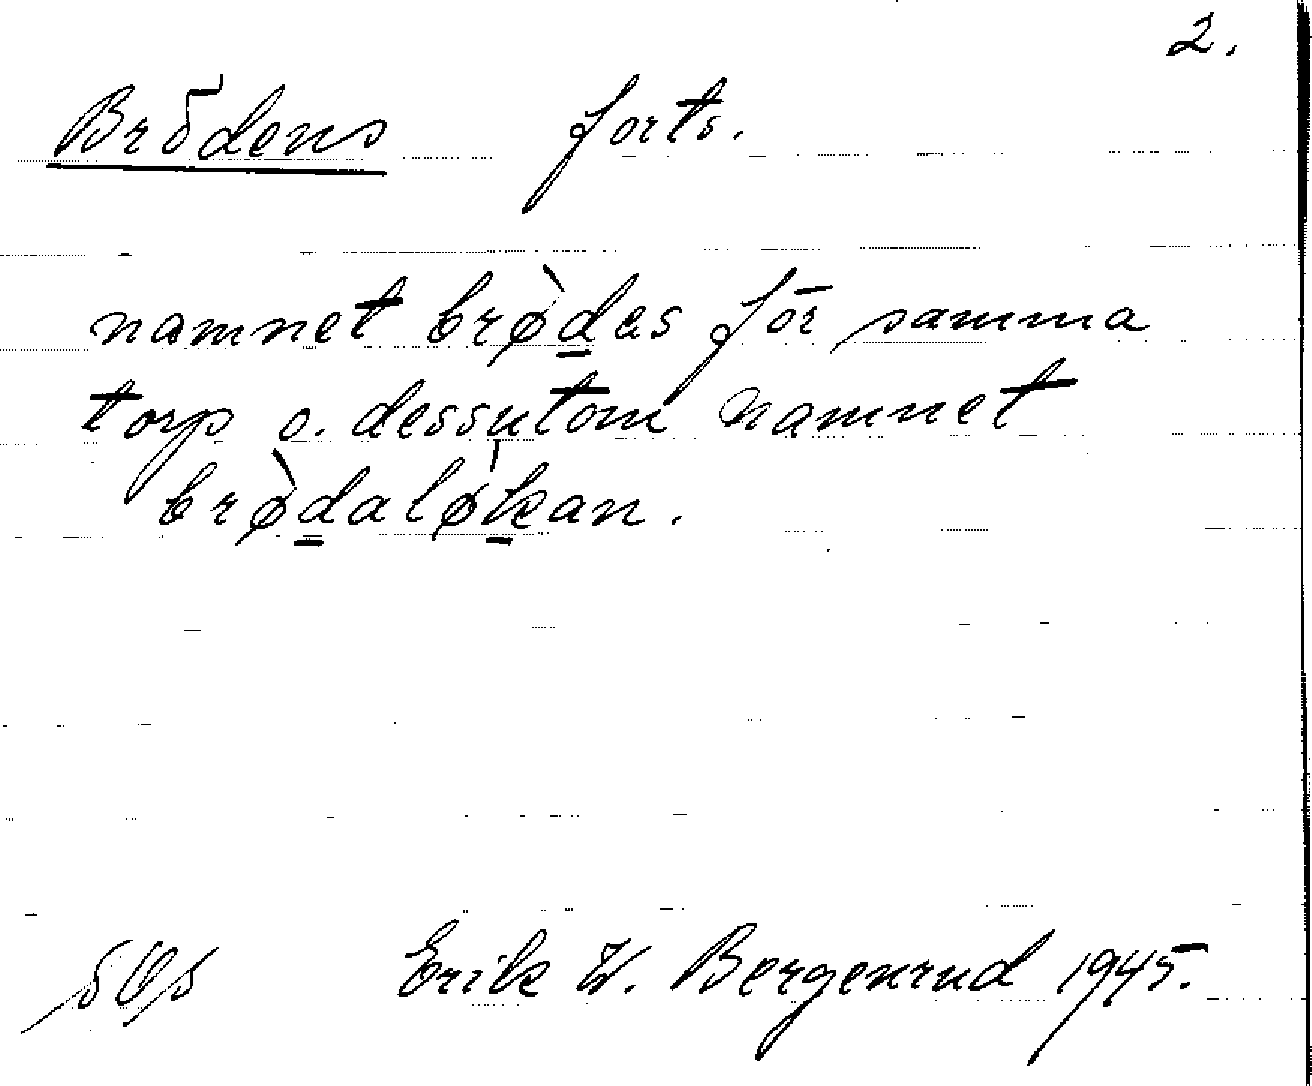 2.
Brödens forts.
namnet brø̀des för samma
torp o. dessutom namnet
brø̀daløkan.
Erik W. Bergenrud 1945.